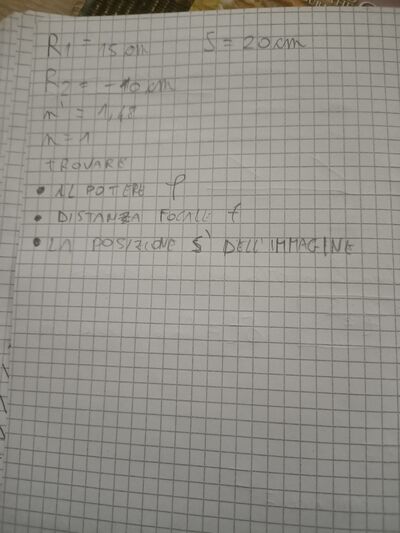 R1 = 15 cm S = 20 cm
R2 = -10 cm
n' = 1,48
n = 1
TROVARE
• IL POTERE φ
• DISTANZA FOCALE f
• LA POSIZIONE S' DELL'IMMAGINE